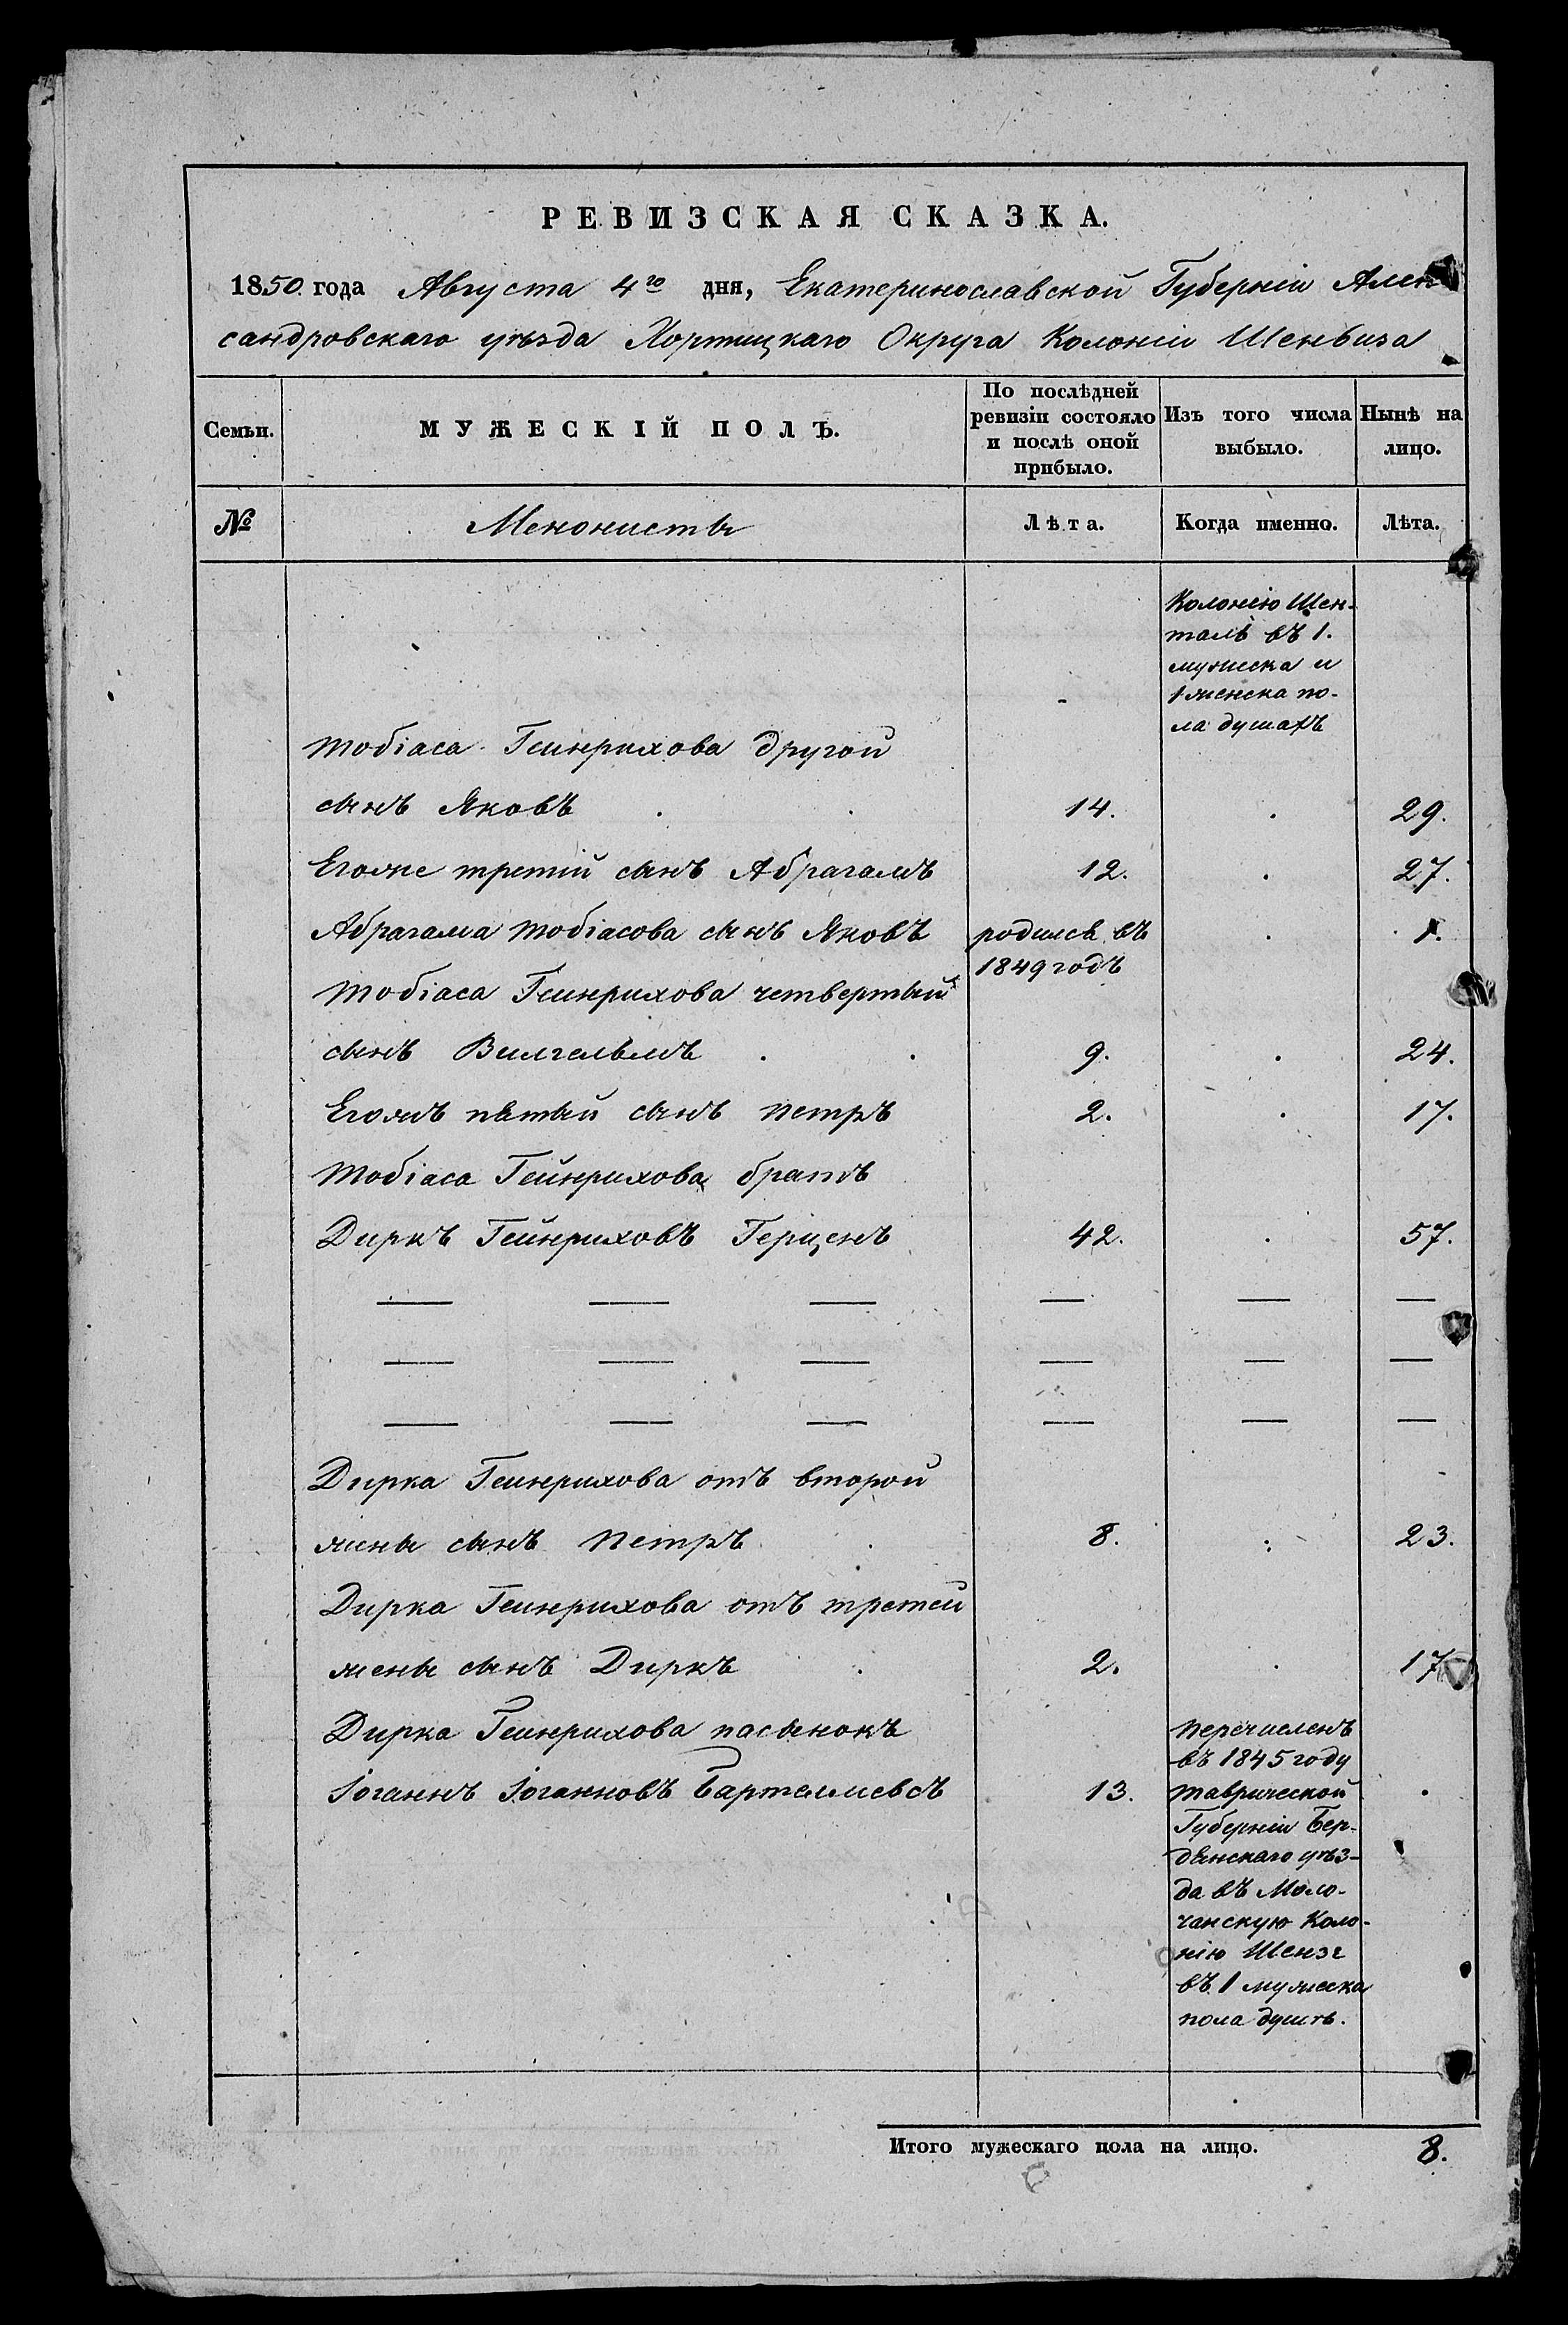 РЕВИЗСКАЯ СКАЗКА.
1850 года Августа 4го дня, Екатеринославской Губерніи Алек
сандровскаго уѣзда Хортицкаго Округа Колоніи Шенвиза
Семьи.
МУЖЕСКІЙ ПОЛЪ.
По послѣдней
ревизіи состояло
и послѣ оной
прибыло.
Изъ того числа
выбыло.
Нынѣ на
лицо.
№
Менонисты
Лѣта.
Когда именно.
Лѣта.
Колонію Шен-
таль въ 1.
мужеска и
1 женска по-
ла душахъ
Тобіаса Гейнрихова другой
сынъ Яковъ . . 14. . 29.
Егоже третій сынъ Абрагамъ 12. . 27.
Абрагама Тобіасова сынъ Яковъ родился въ . 1.
1849 годѣ
Тобіаса Гейнрихова четвертый
сынъ Вилгельмъ . . 9. . 24.
Егожъ пятый сынъ Петръ 2. . 17.
Тобіаса Гейнрихова братъ
Диркъ Гейнриховъ Герценъ 42. . 57.
— — — — — —
— — — — — —
— — — — — —
Дирка Гейнрихова отъ второй
жены сынъ Петръ . 8. . 23.
Дирка Гейнрихова отъ третей
жены сынъ Диркъ . 2. . 17
Дирка Гейнрихова пасынокъ
Іоганнъ Іоганновъ Бартелмевсъ 13. .
Перечисленъ
въ 1845 году
Таврической
Губерніи Бер-
дянскаго уѣз-
да въ Моло-
чанскую Коло-
нію Шензе
въ 1 мужеска
пола душѣ.
Итого мужескаго пола на лицо. 8.